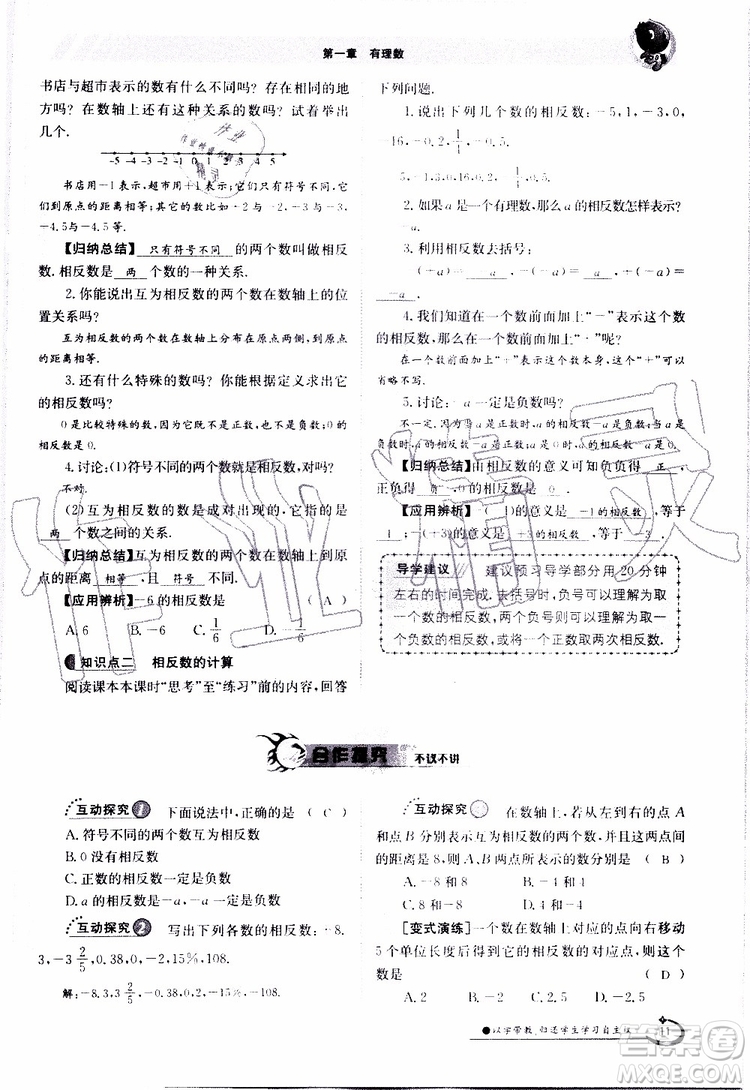 第一章 有理数
书店与超市表示的数有什么不同吗？存在相同的地
方吗？在数轴上还有这种关系的数吗？试着举出
几个.
-5 -4 -3 -2 -1 0 1 2 3 4 5
书店用-1表示,超市用+1表示;它们只有符号不同,到
原点的距离相等;其它的数比如-2与+2,-3与+3,
-4.5与+4.5等.
【归纳总结】 只有符号不同 的两个数叫做相反
数.相反数是 两 个数的一种关系.
2.你能说出互为相反数的两个数在数轴上的位
置关系吗？
互为相反数的两个数在数轴上分布在原点两侧,到原点
的距离相等.
3.还有什么特殊的数吗？你能根据定义求出它
的相反数吗？
0是比较特殊的数,因为它既不是正数,也不是负数;0的相
反数是0.
4.讨论:(1)符号不同的两个数就是相反数,对吗？
不对.
(2)互为相反数的数是成对出现的,它指的是
两 个数之间的关系.
【归纳总结】互为相反数的两个数在数轴上到原
点的距离 相等 ,且 符号 相反.
【应用辨析】-6的相反数是 ( A )
A.6 B.-6 C.1/6 D.-1/6
知识点二 相反数的计算
阅读课本本课时“思考”至“练习”前的内容,回答
下列问题.
1.说出下列几个数的相反数:-5,1,-3,0,
2.如果a是一个有理数,那么a的相反数怎样表示?
-a.
3.利用相反数去括号:
4.我们知道在一个数前面加上“-”表示这个数
的相反数,那么在一个数前面加上“+”呢?
在一个数前面加上“+”表示这个数本身,这个“+”可以
省略不写.
5.讨论:-a一定是负数吗?
【归纳总结】由相反数的意义可知负负得 正 ,
导学建议 建议预习导学部分用20分钟
左右的时间完成.去括号时,负号可以理解为取
一个数的相反数,两个负号则可以理解为取一
个数的相反数,或将一个正数取两次相反数.
合作探究 不议不讲
互动探究1 下面说法中,正确的是 ( C )
A.符号不同的两个数互为相反数
B.0没有相反数
C.正数的相反数一定是负数
D.a的相反数是-a,-a一定是负数
互动探究2 写出下列各数的相反数:-8,
3,-3 2/5,0.38,0,-2,15%,108.
互动探究 在数轴上,若从左到右的点A
和点B分别表示互为相反数的两个数,并且这两点间
的距离是8,则A、B两点所表示的数分别是 ( B )
A.4和-4 B.-4和4
C.8和2 D.-8和8
[变式演练]一个数在数轴上对应的点向右移动
5个单位长度后得到它的相反数的对应点,则这个
数是 ( D )
A.2 B.-2 C.2.5 D.-2.5
以学带教,归还学生学习自主权
11